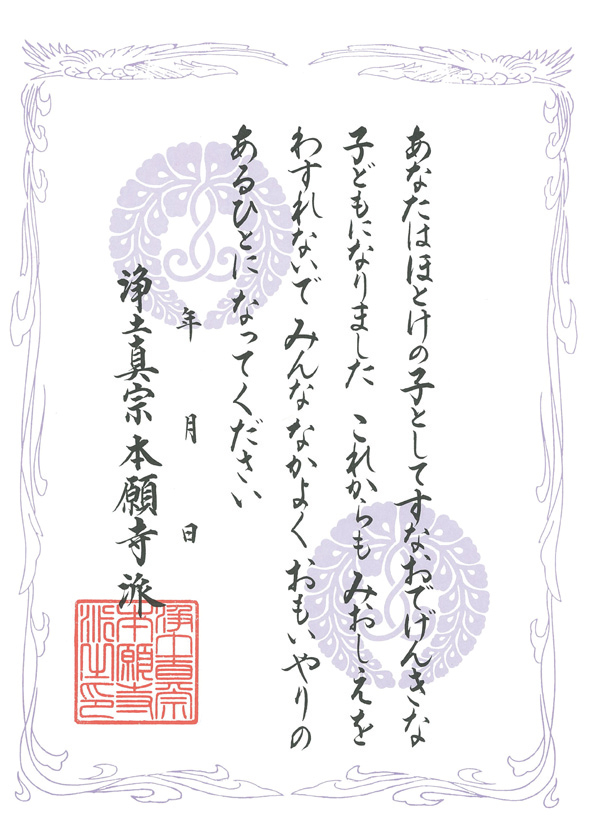 あなたはほとけの子としてすなおでげんきな
子どもになりました これからも みおしえを
わすれないで みんな なかよく おもいやりの
あるひとになってください
年 月 日
浄土真宗本願寺派
浄土真宗
本願寺
派之印